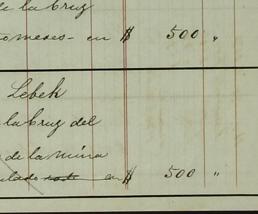 de la Cruz
meses - en $ 500 "
Lebek
la Cruz del
de la mina
lado en $ 500 "